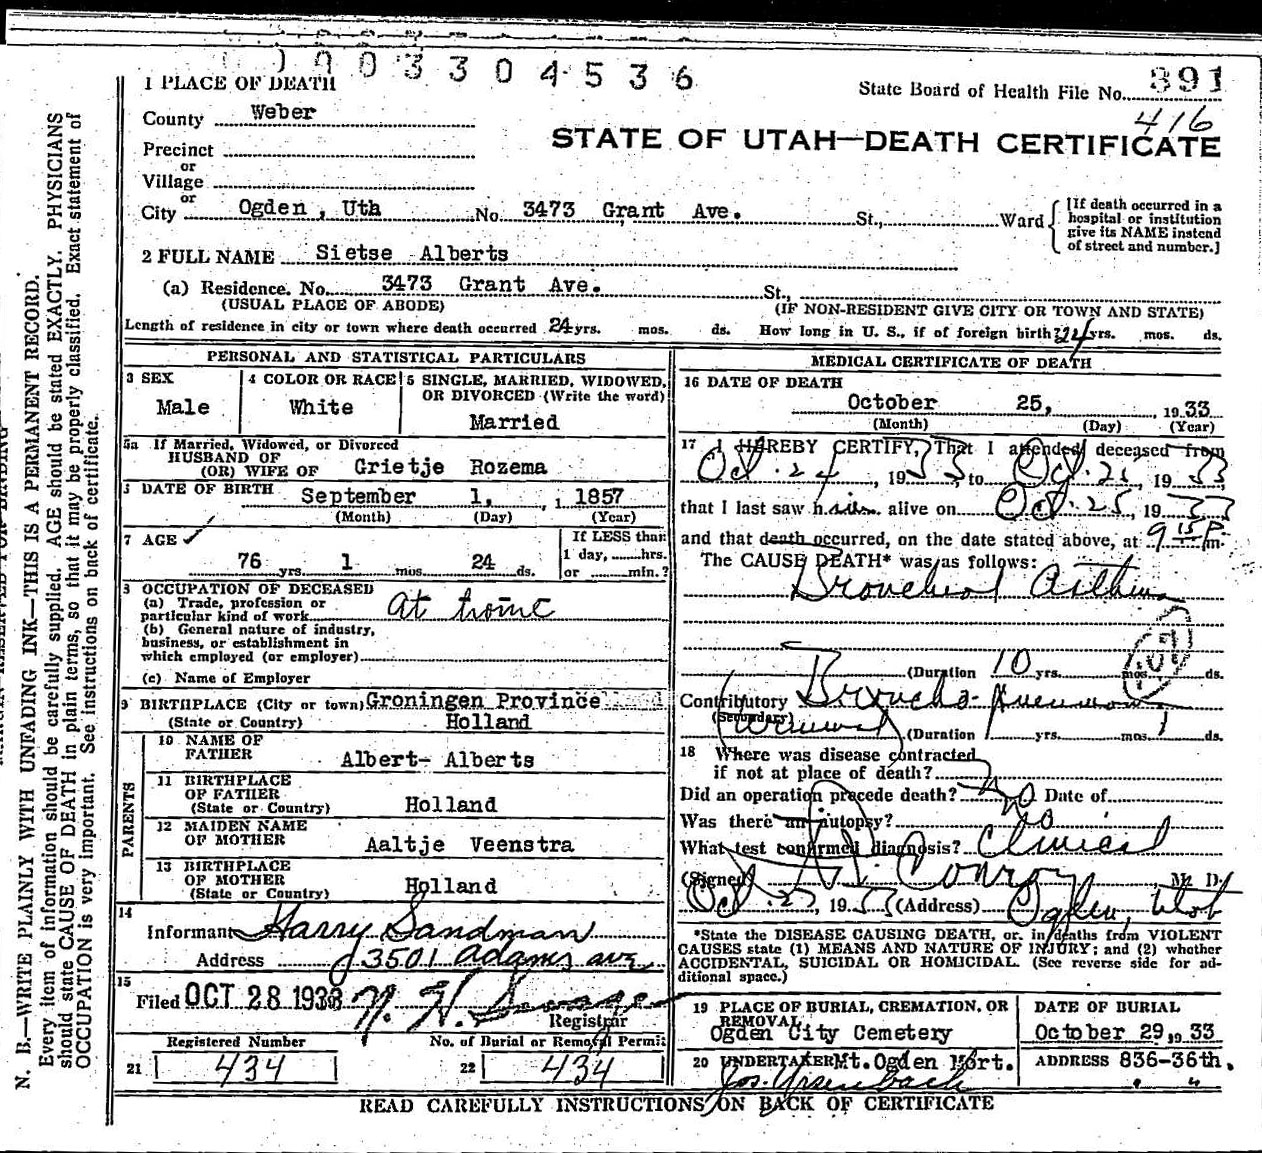 0003304536
1 PLACE OF DEATH
State Board of Health File No. 891
416
County Weber
STATE OF UTAH—DEATH CERTIFICATE
Precinct
or
Village
or
City Ogden, Uth No. 3473 Grant Ave. St., Ward
[If death occurred in a hospital or institution give its NAME instead of street and number.]
2 FULL NAME Sietse Alberts
(a) Residence. No. 3473 Grant Ave. St.,
(USUAL PLACE OF ABODE) (IF NON-RESIDENT GIVE CITY OR TOWN AND STATE)
Length of residence in city or town where death occurred 24 yrs. mos. ds. How long in U. S., if of foreign birth? 24 yrs. mos. ds.
PERSONAL AND STATISTICAL PARTICULARS
3 SEX
Male
4 COLOR OR RACE
White
5 SINGLE, MARRIED, WIDOWED, OR DIVORCED (Write the word)
Married
5a If Married, Widowed, or Divorced
HUSBAND OF
(OR) WIFE OF Grietje Rozema
DATE OF BIRTH September 1, 1857
(Month) (Day) (Year)
7 AGE
76 yrs. 1 mos. 24 ds.
If LESS than
1 day, hrs.
or min.?
OCCUPATION OF DECEASED
(a) Trade, profession or
particular kind of work at home
(b) General nature of industry,
business, or establishment in
which employed (or employer)
(c) Name of Employer
9 BIRTHPLACE (City or town) Groningen Province
(State or Country) Holland
PARENTS
10 NAME OF
FATHER Albert- Alberts
11 BIRTHPLACE
OF FATHER
(State or Country) Holland
12 MAIDEN NAME
OF MOTHER Aaltje Veenstra
13 BIRTHPLACE
OF MOTHER
(State or Country) Holland
14
Informant Harry Sandman
Address 3501 Adams ave
15
Filed OCT 28 1933
Registrar
Registered Number
21 434
No. of Burial or Removal Permit
22 434
MEDICAL CERTIFICATE OF DEATH
16 DATE OF DEATH
October 25, 1933
(Month) (Day) (Year)
17 I HEREBY CERTIFY, That I attended deceased from
Oct. 24, 1933, to Oct. 25, 1933
that I last saw him alive on Oct. 25, 1933
and that death occurred, on the date stated above, at 9 15 P m.
The CAUSE DEATH* was as follows:
Broncheol Asthma
(Duration 10 yrs. mos. ds.
Contributory Broncho-pneumonia
(Secondary)
(Duration yrs. mos. 1 ds.
18 Where was disease contracted
if not at place of death?
Did an operation precede death? no Date of
Was there an autopsy? no
What test confirmed diagnosis? Clinical
(Signed) Conroy M. D.
Oct. 27, 1933 (Address) Ogden, Utah
*State the DISEASE CAUSING DEATH, or, in deaths from VIOLENT
CAUSES state (1) MEANS AND NATURE OF INJURY; and (2) whether
ACCIDENTAL, SUICIDAL OR HOMICIDAL. (See reverse side for ad-
ditional space.)
19 PLACE OF BURIAL, CREMATION, OR
REMOVAL
Ogden City Cemetery
DATE OF BURIAL
October 29, 1933
20 UNDERTAKER Mt. Ogden Mort.
ADDRESS 836-36th.
" "
READ CAREFULLY INSTRUCTIONS ON BACK OF CERTIFICATE
N. B.—WRITE PLAINLY WITH UNFADING INK—THIS IS A PERMANENT RECORD.
Every item of information should be carefully supplied. AGE should be stated EXACTLY. PHYSICIANS
should state CAUSE OF DEATH in plain terms, so that it may be properly classified. Exact statement of
OCCUPATION is very important. See instructions on back of certificate.